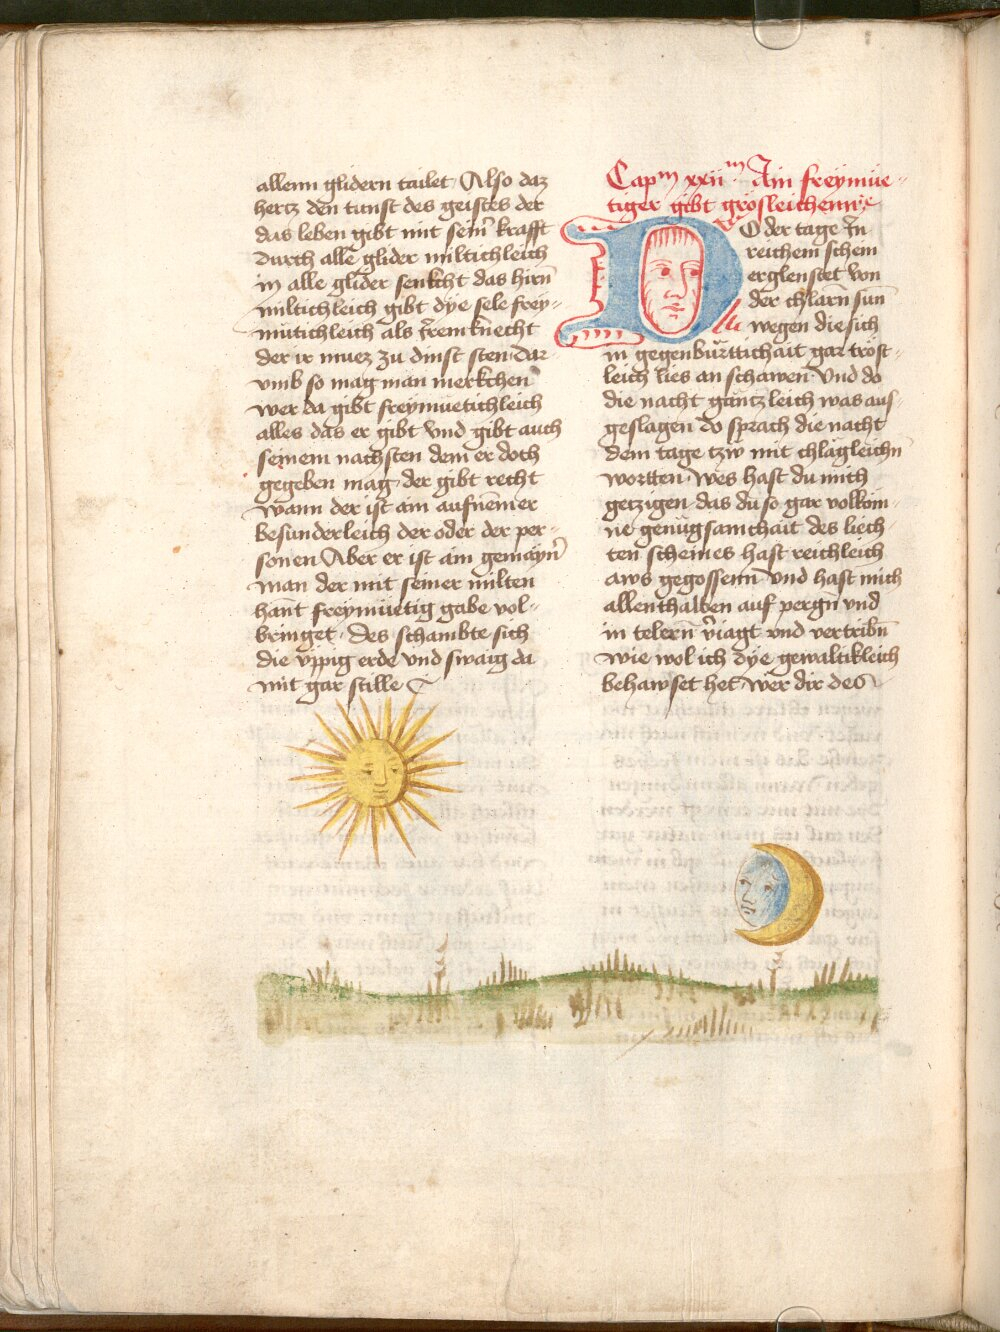 allenn glidern tailet Also daz
hercz den tunst des geistes der
das leben gibt mit seim̄ krafft
durch alle glider miltichleich
in alle glider senkcht das hirn
miltichleich gibt dye sele frey-
mütichleich als irem knecht
der ir muez zu dinst sten dar
vmb so mag man merkchen
wer da gibt freymuetichleich
alles das er gibt vnd gibt auch
seinem nachsten dem er doch
gegeben mag der gibt recht
wann der ist ain aufnem̄er
besunderleich der oder der per-
sonen Aber er ist ain gemayn̄
man der mit seiner milten
hant freymüetig gabe vol-
bringet des schambte sich
die vppig erde vnd swaig da
mit gar stille
Capm xxiim Ain freymüe-
tiger gibt grösleichenn
DO der tage In
reichem schein
erglenstet von
der chlarn sun
wegen die sich
in gegenbürttichait gar tröst-
leich lies an schawen Vnd do
die nacht gäntzleich was aus-
geslagen do sprach die nacht
dem tage tzw mit chlägleichn
wortten wes hast du mich
getzigen das du so gar volköm-
ne genugsamchait des liech-
ten scheines hast reichleich
aws gegossenn vnd hast mich
allenthalben auf pergn̄ vnd
in telern v̄iagt vnd vertribn̄
wie wol ich dye gewaltikleich
behawset het wer dir des